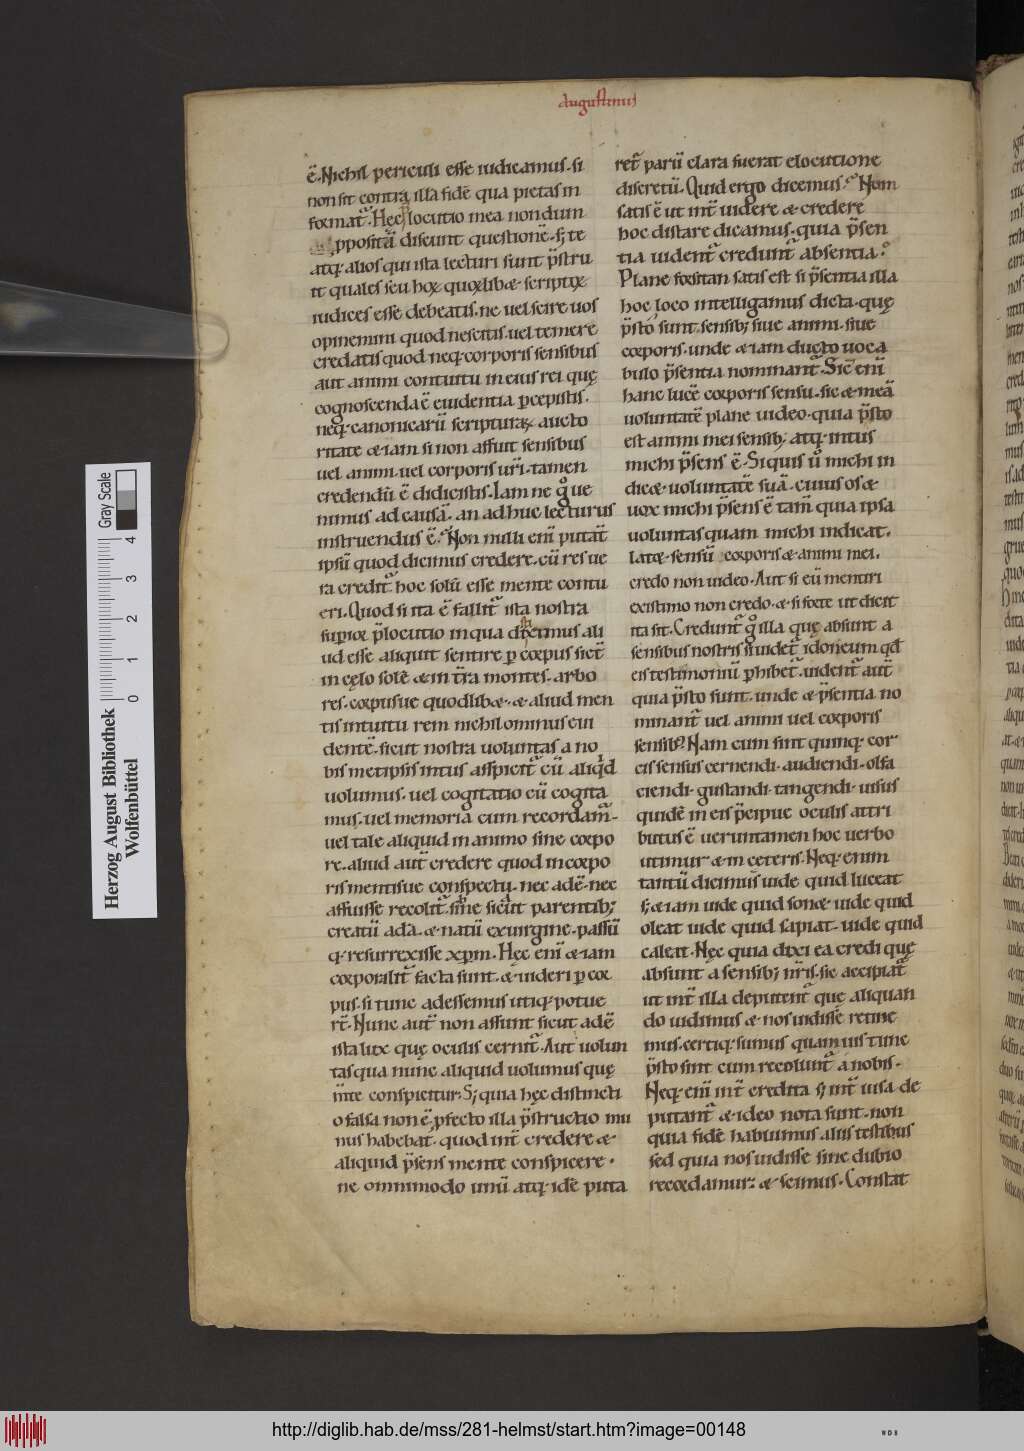 Augustinus
ē. Nichil periculi esse iudicamus. si
non sit contra illa fidē qua pietas in
format᷑. Hęc locutio mea nondum
ppositā discunt questionē. s; te
atq; alios qui ista lecturi sunt p̄stru
it quales seu hoꝝ quoꝝlibet scriptoꝝ
iudices esse debeatis. ne uel scire uos
opinemini quod nescitis. uel temere
credatis quod neq; corporis sensibus
aut animi contuitu in eius rei quę
cognoscenda ē euidentia ꝑcepistis.
neq; canonicarū scripturaꝝ aucto
ritate & iam si non affuit sensibus
uel animi. uel corporis ur̄i. tamen
credendū ē didicistis. Iam ne g̊ ue
nimus ad causā. an ad huc lecturus
instruendus ē. Non nulli enī putāt
ipsū quod dicimus credere. cū res ue
ra credit᷑ hoc solū esse mente contu
eri. Quod si ita ē fallit᷑ ista nostra
superior p̄locutio in qua diximus ali
ud esse aliquit sentire ꝑ corpus sicut᷑
in cęlo solē & in t̄ra montes. arbo
res. corpusue quodlibet. & aliud men
tis intuitu rem nichilominus eui
dentē. sicut nostra uoluntas a no
bismetipsis intus asspicit᷑ cū aliqd
uolumus. uel cogitatio cū cogita
mus. uel memoria cum recordam᷑.
uel tale aliquid in animo sine corpo
re. aliud aut̄ credere quod in corpo
ris mentisue conspectu. nec adē. nec
affuisse recolit᷑. sine sicut parentib;
creatū adā. & natū ex uirgine. passū
q; resurrexisse xp̄m. Hęc enī & iam
corporalit᷑ facta sunt. & uideri ꝑ cor
pus. si tunc adessemus utiq; potue
rt̄. Nunc aut̄ non assunt sicut adē
ista lux quę oculis cernit᷑. Aut uolun
tas qua nunc aliquid uolumus quę
m̄te conspicitur. S; quia hęc distincti
o falsa non ē. ꝓfecto illa p̄structio mi
nus habebat. quod int᷑ credere &
aliquid p̄sens mente conspicere.
ne omnimodo unū atq; idē puta
ret᷑ parū clara fuerat elocutione
discretū. Quid ergo dicemus? Num
satis ē ut int᷑ uidere & credere
hoc distare dicamus. quia p̄sen
tia uident᷑ credunt᷑ absentia?
Plane forsitan satis est si p̄sentia illa
hoc loco intelligamus dicta. quę
p̄sto sunt sensib; siue animi. siue
corporis. unde & iam ducto uoca
bulo p̄sentia nominant᷑. Sic enī
hanc lucē corporis sensu. sic & meā
uoluntatē plane uideo. quia p̄sto
est animi mei sensib; atq; intus
michi p̄sens ē. Si quis ū michi in
dicet uoluntatē suā. cuius os &
uox michi p̄sens ē tam̄ quia ipsa
uoluntas quam michi indicat.
latet sensū corporis & animi mei.
credo non uideo. Aut si eū mentiri
existimo non credo. & si forte ut dicit
ita sit. Credunt᷑ g̊ illa quę absunt a
sensibus nostris si uidet᷑ idoneum qd̄
eis testimoniū ꝑhibet᷑. uident᷑ aut̄
quia p̄sto sunt. unde & p̄sentia no
minant᷑ uel animi uel corporis
sensib;. Nam cum sint quinq; cor
eis sensus cernendi. audiendi. olfa
ciendi. gustandi. tangendi. uisus
quidē in eis p̄cipue oculis attri
butus ē ueruntamen hoc uerbo
utimur & in ceteris. Neq; enim
tantū dicimus uide quid luceat
s; & iam uide quid sonet. uide quid
oleat uide quid sapiat. uide quid
caleat. Nęc quia dixi ea credi quę
absunt a sensib; nr̄is. sic accipiat᷑
ut int᷑ illa deputent᷑ quę aliquan
do uidimus & nos uidisse retine
mus. certiq; sumus quamuis tunc
p̄sto sint cum recolunt᷑ a nobis.
Neq; enī int᷑ credita s; int᷑ uisa de
putant᷑ & ideo nota sunt. non
quia fidē habuimus aliis testibus
sed quia nos uidisse sine dubio
recordamur. & scimus. Constat
Herzog August Bibliothek
Wolfenbüttel
Gray Scale
0 1 2 3 4
http://diglib.hab.de/mss/281-helmst/start.htm?image=00148